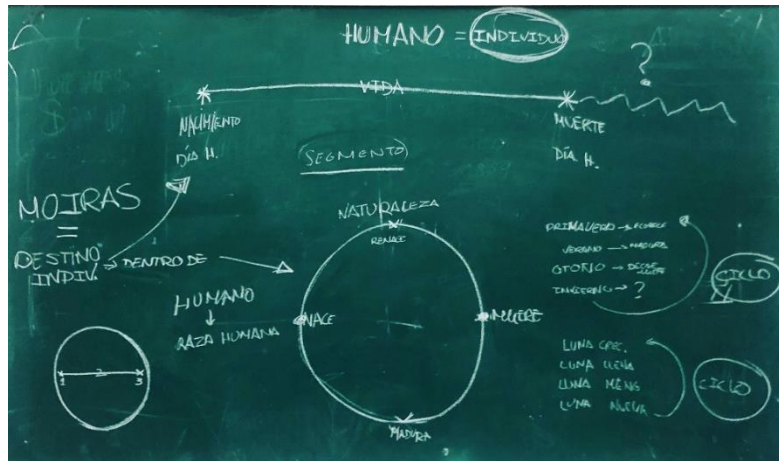 HUMANO = INDIVIDUO
?
VIDA
NACIMIENTO
DÍA H.
MUERTE
DÍA H.
SEGMENTO
MOIRAS
=
DESTINO
INDIV.
→ DENTRO DE
NATURALEZA
RENACE
NACE
MUERE
MADURA
HUMANO
↓
RAZA HUMANA
1 2 3
PRIMAVERA → FLORECE
VERANO → MADURA
OTOÑO →
INVIERNO → ?
CICLO
LUNA CREC.
LUNA LLENA
LUNA MENG.
LUNA NUEVA
CICLO